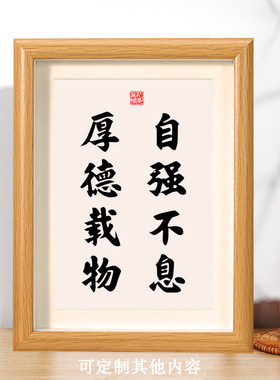 自强不息
厚德载物
可定制其他内容